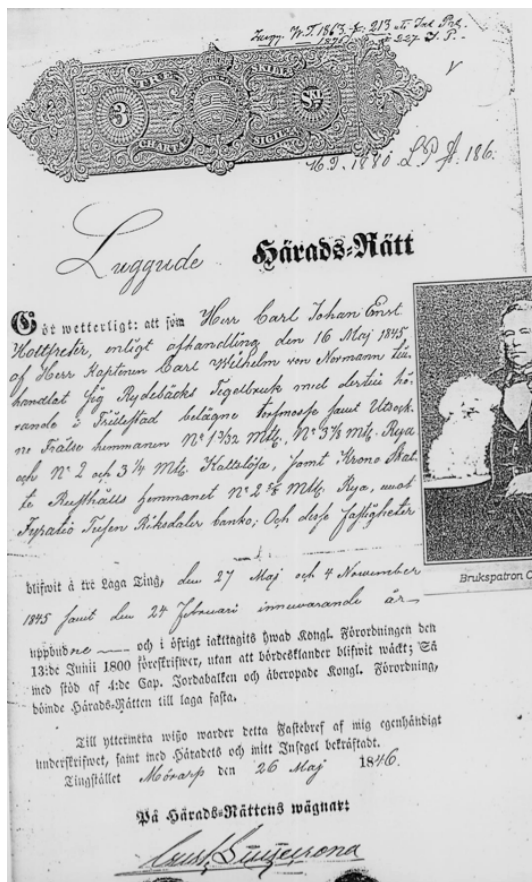 W. T. 1863 p. 213
227 T. P.
3
CHARTA
SIGILL
16 D. 1880. L. P. № 186.
Luggude Härads-Rätt
Gör wetterligt: att som Herr Carl Johan Ernst
Holtfreter, enligt afhandling den 16 Maj 1845,
af Herr Kaptenen Carl Wilhelm von Normann till-
handlat sig Rydebäcks Tegelbruk med dertill hö-
rande i Frillestad belägne torfmosse samt Utsock-
ne Frälse hemmanen N° 1 3/32 Mtl, N° 3 1/8 Mtl. Rya
och N° 2 och 3 1/4 Mtl. Kattslösa, samt Krono Skat-
te Rusthålls hemmanet N° 2 Mtl. Rya, emot
Fyratio Tusen Riksdaler banko; Och desse fastigheter
blifwit å tre Laga Ting, den 27 Maj och 4 November
1845 samt den 24 Februari innevarande år
uppbudne — och i öfrigt iakttagits hwad Kongl. Förordningen den
13:de Junii 1800 föreskrifwer, utan att bördesklander blifwit wäckt; Så
med stöd af 4:de Cap. Jordabalken och åberopade Kongl. Förordning,
dömde Härads-Rätten till laga fasta.
Till yttermera wißo warder detta Fastebref af mig egenhändigt
underskrifwet, samt med Häradets och mitt Insegel bekräftadt.
Tingstället Mörarp den 26 Maj 1846.
På Härads-Rättens wägnar:
Brukspatron C